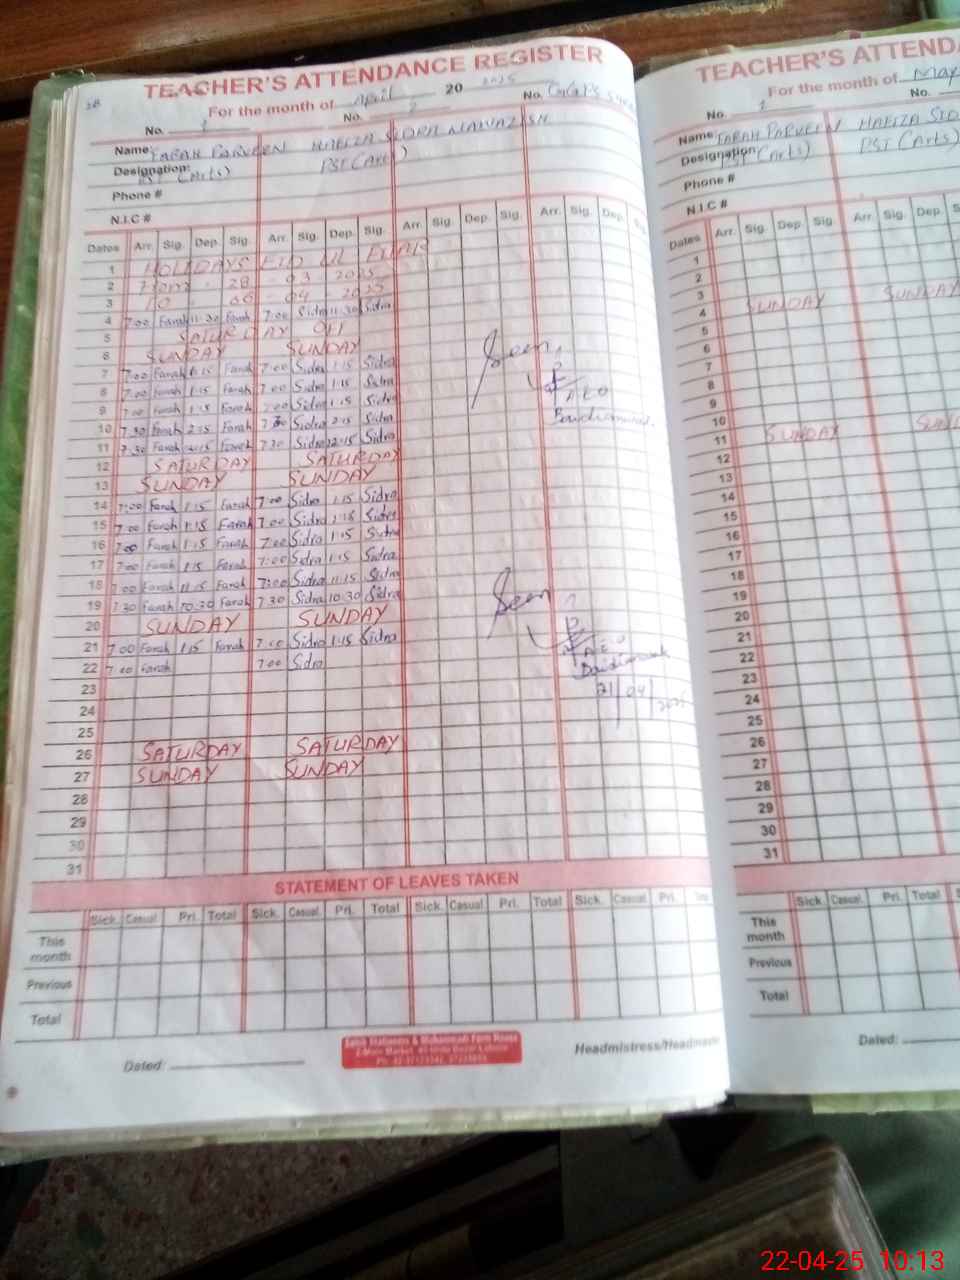 TEACHER'S ATTENDANCE REGISTER
For the month of April 20 2025
No. 1 No. 2 No.
Name: FARAH PARVEEN HAFIZA SIDRA NAWAZISH
Designation: PST (Arts) PST (Arts)
Phone #
N.I.C #
Dates Arr. Sig. Dep. Sig. Arr. Sig. Dep. Sig. Arr. Sig. Dep. Sig. Arr. Sig. Dep. Sig.
1 HOLIDAYS EID UL FITAR
2 From 28 - 03 - 2025
3 TO 06 - 04 - 2025
4 7:00 Farah 11:30 Farah 7:00 Sidra 11:30 Sidra
5 SATURDAY OFF
6 SUNDAY SUNDAY
7 7:00 Farah 1:15 Farah 7:00 Sidra 1:15 Sidra
8 7:00 Farah 1:15 Farah 7:00 Sidra 1:15 Sidra
9 7:00 Farah 1:15 Farah 7:00 Sidra 1:15 Sidra
10 7:30 Farah 2:15 Farah 7:30 Sidra 2:15 Sidra
11 7:30 Farah Farah 7:30 Sidra 12:15 Sidra
12 SATURDAY SATURDAY
13 SUNDAY SUNDAY
14 7:00 Farah 1:15 Farah 7:00 Sidra 1:15 Sidra
15 7:00 Farah 1:15 Farah 7:00 Sidra 1:15 Sidra
16 7:00 Farah 1:15 Farah 7:00 Sidra 1:15 Sidra
17 7:00 Farah 1:15 Farah 7:00 Sidra 1:15 Sidra
18 7:00 Farah 11:15 Farah 7:00 Sidra 11:15 Sidra
19 7:30 Farah 10:30 Farah 7:30 Sidra 10:30 Sidra
20 SUNDAY SUNDAY
21 7:00 Farah 1:15 Farah 7:00 Sidra 1:15 Sidra
22 7:00 Farah 7:00 Sidra
23
24
25
26 SATURDAY SATURDAY
27 SUNDAY SUNDAY
28
29
30
31
Seen
AEO
Seen
AEO
21/04/2025
STATEMENT OF LEAVES TAKEN
Sick. Casual. Pri. Total Sick. Casual. Pri. Total Sick. Casual. Pri. Total Sick. Casual. Pri.
This month
Previous
Total
Dated:
Headmistress/Headmaster
TEACHER'S ATTENDA
For the month of May
No. 1 No.
Name: FARAH PARVEEN HAFIZA SID
Designation: PST (Arts) PST (Arts)
Phone #
N.I.C #
Dates Arr. Sig. Dep. Sig. Arr. Sig. Dep.
1
2
3
4 SUNDAY SUNDAY
5
6
7
8
9
10
11 SUNDAY SUND
12
13
14
15
16
17
18
19
20
21
22
23
24
25
26
27
28
29
30
31
Sick. Casual. Pri. Total
This month
Previous
Total
Dated:
22-04-25 10:13